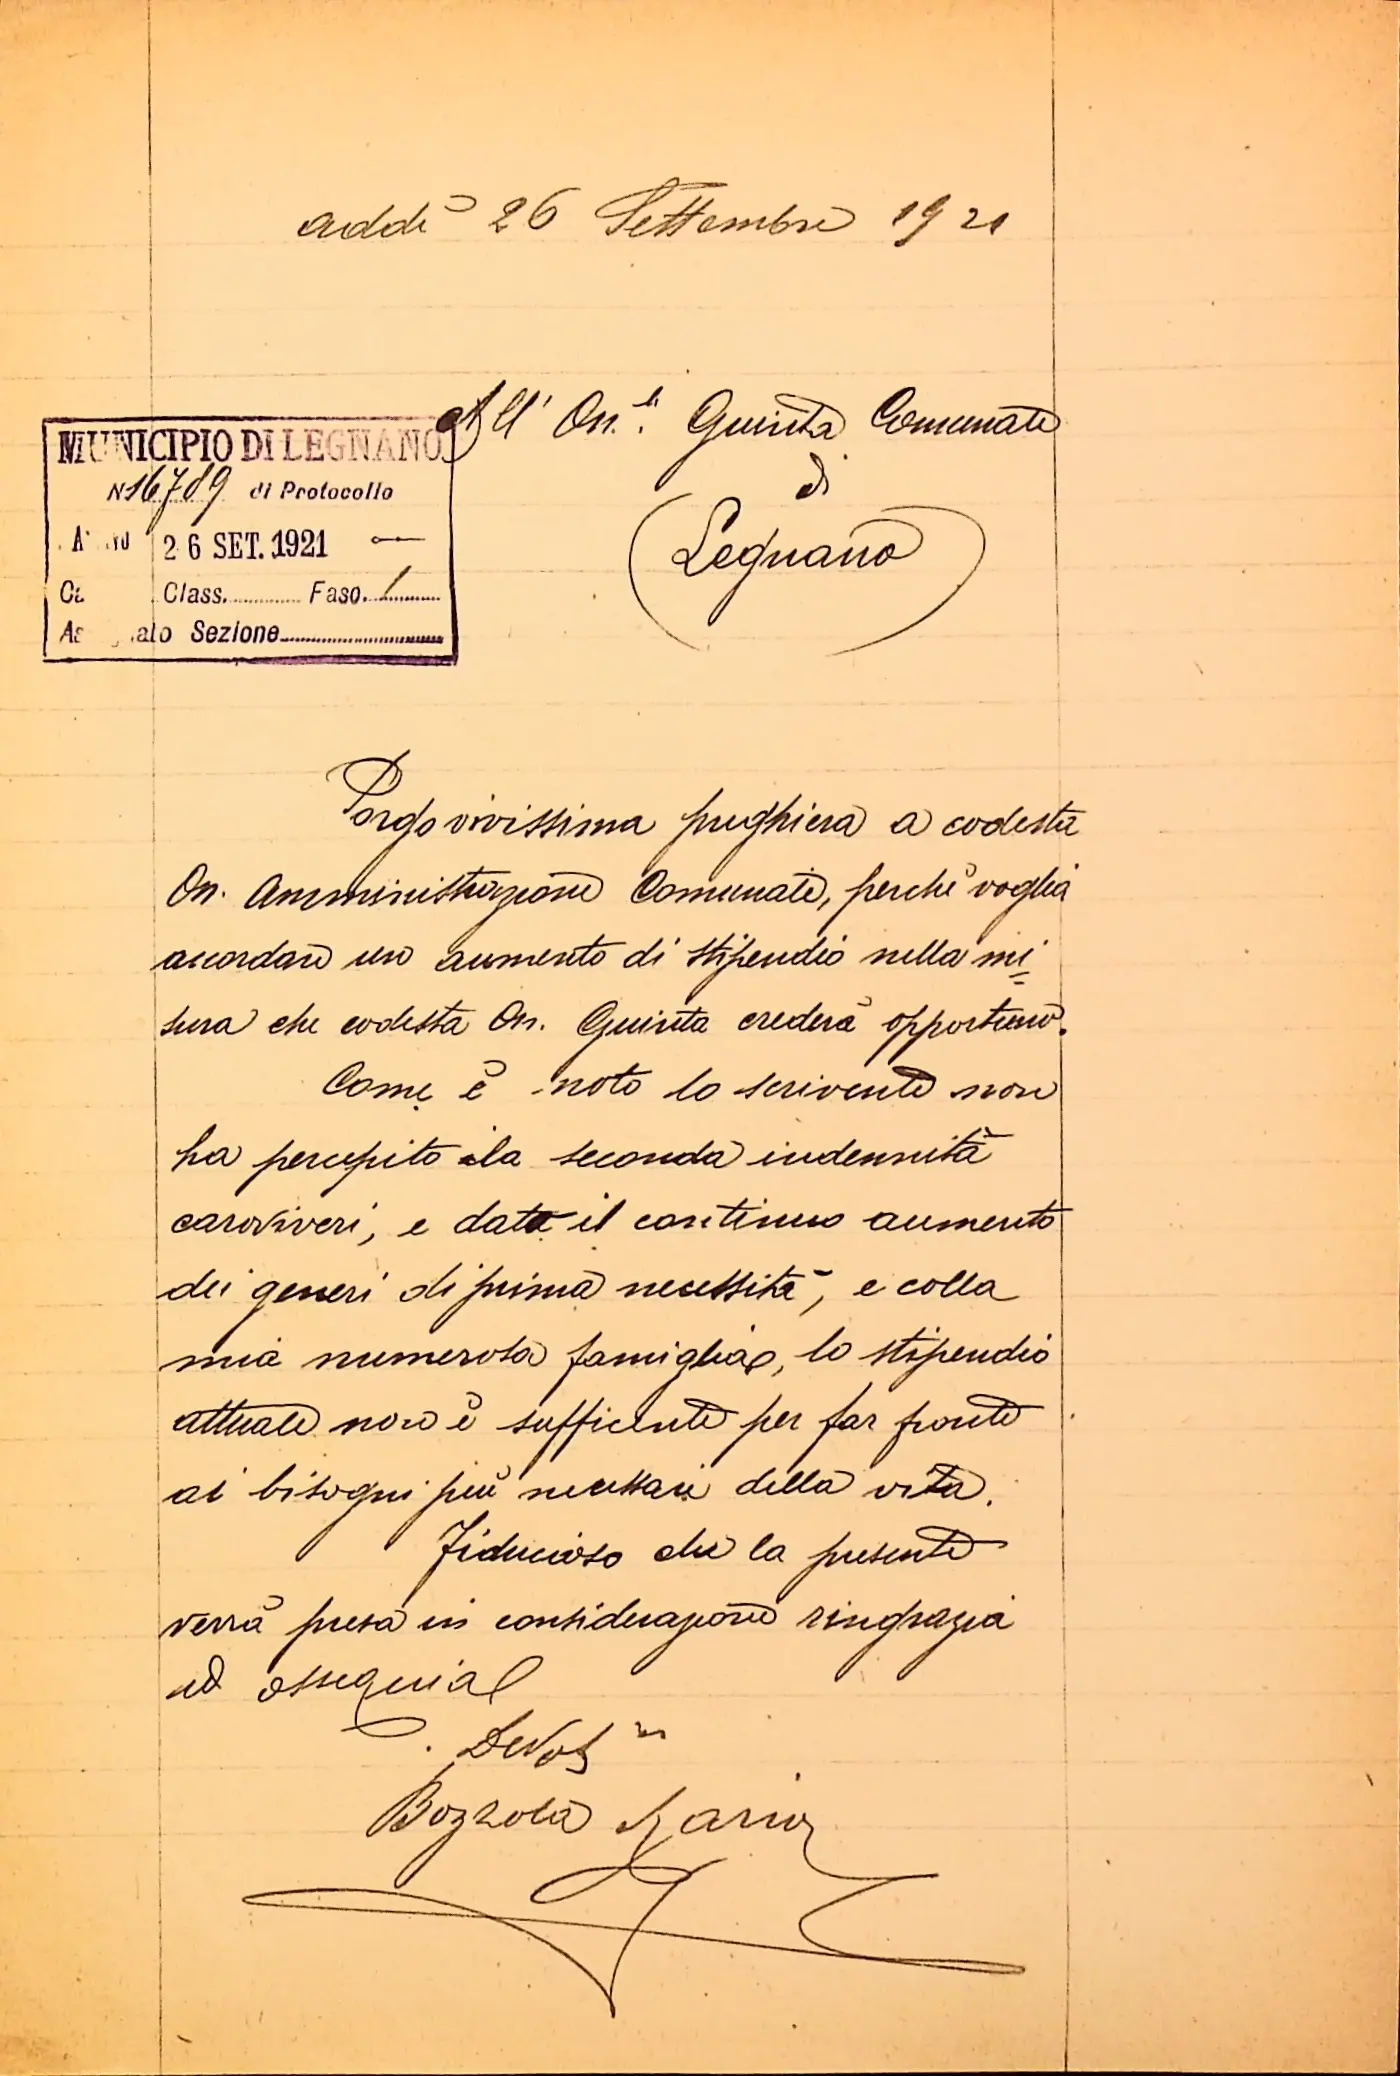 addì 26 Settembre 1921
All' On.le Giunta Comunale
di
Legnano
MUNICIPIO DI LEGNANO
N 16789 di Protocollo
26 SET. 1921
Class. Fasc. 1
Sezione
Porgo vivissima preghiera a codesta
On. Amministrazione Comunale, perchè voglia
accordare un aumento di stipendio nella mi=
sura che codesta On. Giunta crederà opportuno.
Come è noto lo scrivente non
ha percepito la seconda indennità
caroviveri, e dato il continuo aumento
dei generi di prima necessità, e colla
mia numerosa famiglia, lo stipendio
attuale non è sufficente per far fronte
ai bisogni più necessari della vita.
Fiducioso che la presente
verrà presa in considerazione ringrazia
ed ossequia
Devot mo
Bozzola Mario